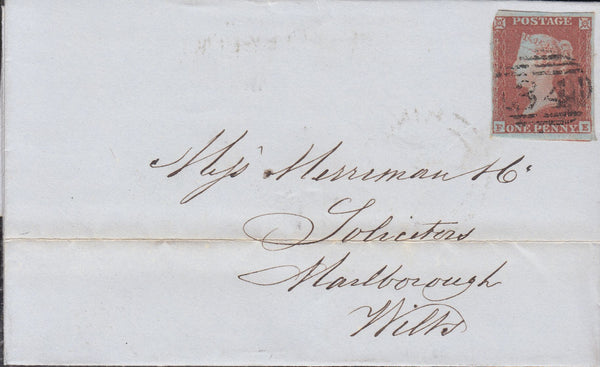 POSTAGE
ONE PENNY
E
Mess Merriman & Co
Solicitors
Marlborough
Wilts